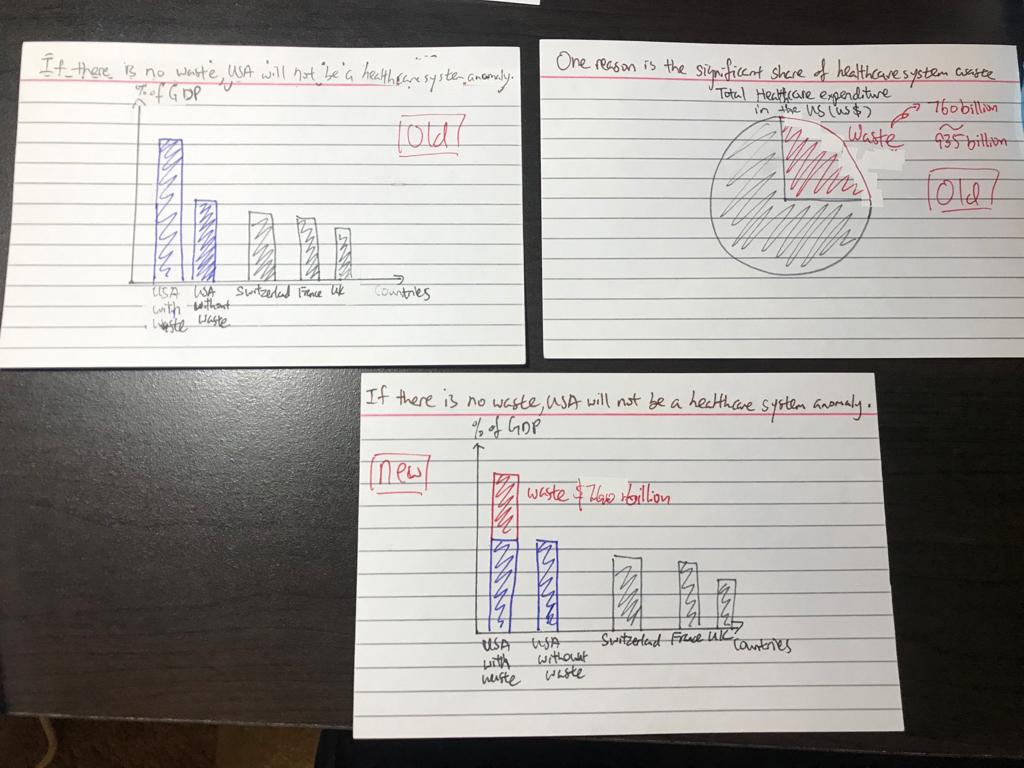 If there is no waste, USA will not be a healthcare system anomaly.
% of GDP
Old
USA with waste
USA without waste
Switzerland
France
UK
Countries
One reason is the significant share of healthcare system waste
Total Healthcare expenditure
in the US (US$)
Waste
760 billion
~
935 billion
Old
If there is no waste, USA will not be a healthcare system anomaly.
% of GDP
new
waste $760 billion
USA with waste
USA without waste
Switzerland
France
UK
Countries